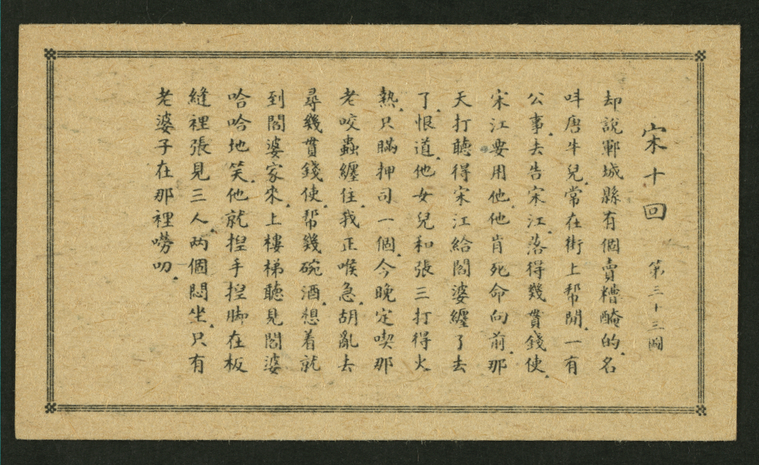 宋十回 第三十三圖
却說鄆城縣有個賣糟醃的名
呌唐牛兒常在街上帮閒一有
公事去告宋江落得幾貫錢使
宋江要用他他肯死命向前那
天打聽得宋江給閻婆纏了去
了恨道他女兒和張三打得火
熱只瞞押司一個今晚定喫那
老咬蟲纏住我正喉急胡亂去
尋幾貫錢使帮幾碗酒想着就
到閻婆家來上樓梯聽見閻婆
哈哈地笑他就揑手揑脚在板
縫裡張見三人兩個悶坐只有
老婆子在那裡嘮叨